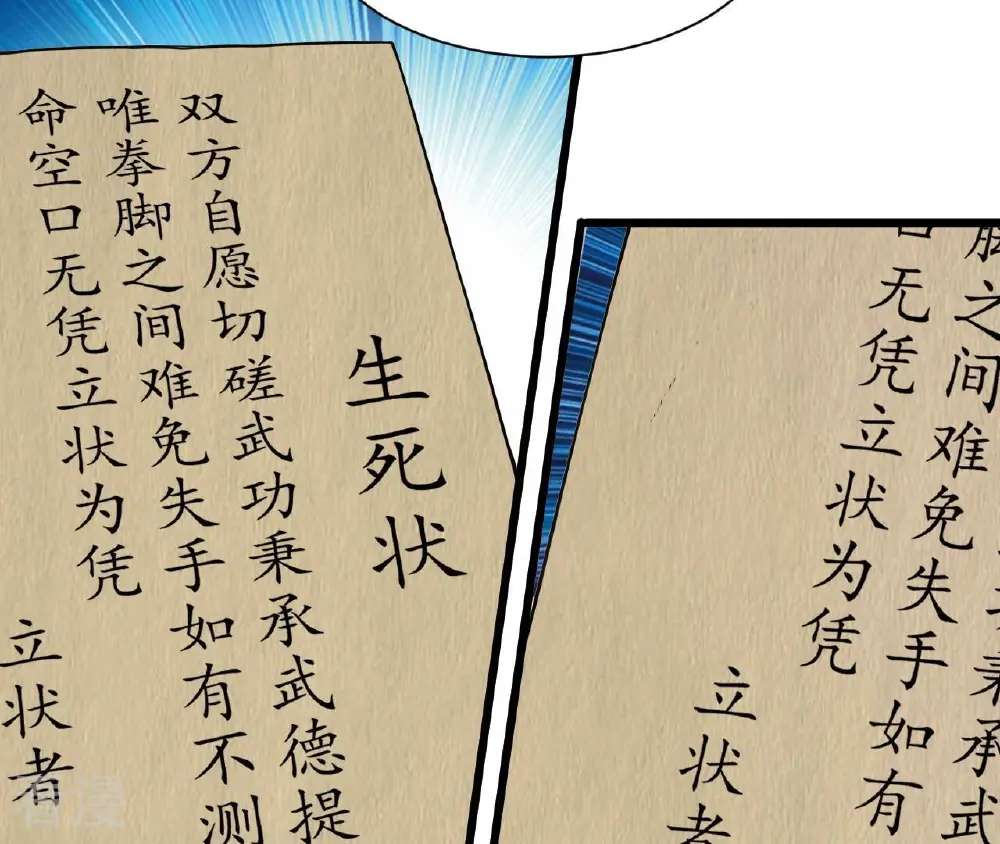 生死状
双方自愿切磋武功秉承武德提
唯拳脚之间难免失手如有不测
命空口无凭立状为凭
立状者
之间难免失手如有
口无凭立状为凭
立状者
秉承武